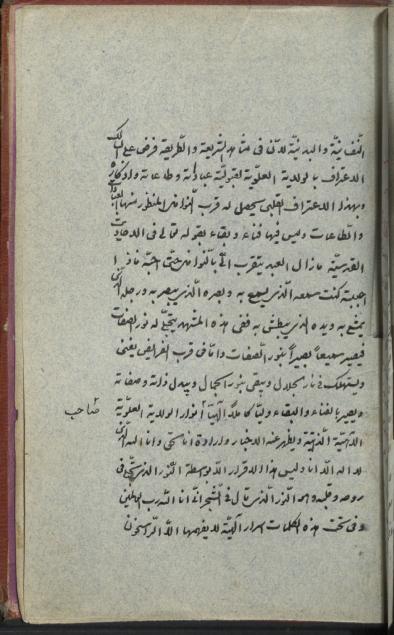 النّفسانيّة والبدنيّة لانّ فى مشاهد الشريعة والطّريقة فرض على السالك
الاعتراف بالولاية العلويّة لقبوليّة عباداته وطاعاته واذكاره
وبهذا الاعتراف القلبى يحصل له قرب النوافل المنظور منها العبادات
والطاعات وليس فيها فناء وبقاء بقوله تعالى فى الاحاديث
القدسيّة مازال العبد يتقرب الىّ بالنّوافل حتّى احبّه فاذا
احببته كنت سمعه الّذى يسمع به وبصره الّذى يبصر به ورجله الّتى
يمشى به ويده الّذى يبطش به ففى هذه المشهد يتجلّى له نور الصفات
فيصير سميعاً بصيراً بنور الصّفات وامّا فى قرب الفرائض يفنى
ويستهلك فى نار الجلال ويبقى بنور الجمال ويبدل ذاته وصفاته
ويصير بالفناء والبقاء وليّاً كاملاً الهيّاً انوار الولاية العلويّة
صاحب
اللاهيّة الذّاتيّة ويظهر عنه الاختيار والارادة انا الحق وانا الله الّذى
لا اله الّا انا وليس هذا الاقرار الّا بوسطة النّور الّذى تجلّى فى
روحه وقلبه وهو النّور الّذى قال فى الشّجر انّى انا اللّه رب العالمين
وفى تحت هذه الكلمات اسرار الهيّة لا يفهمها الّا الرّاسخون